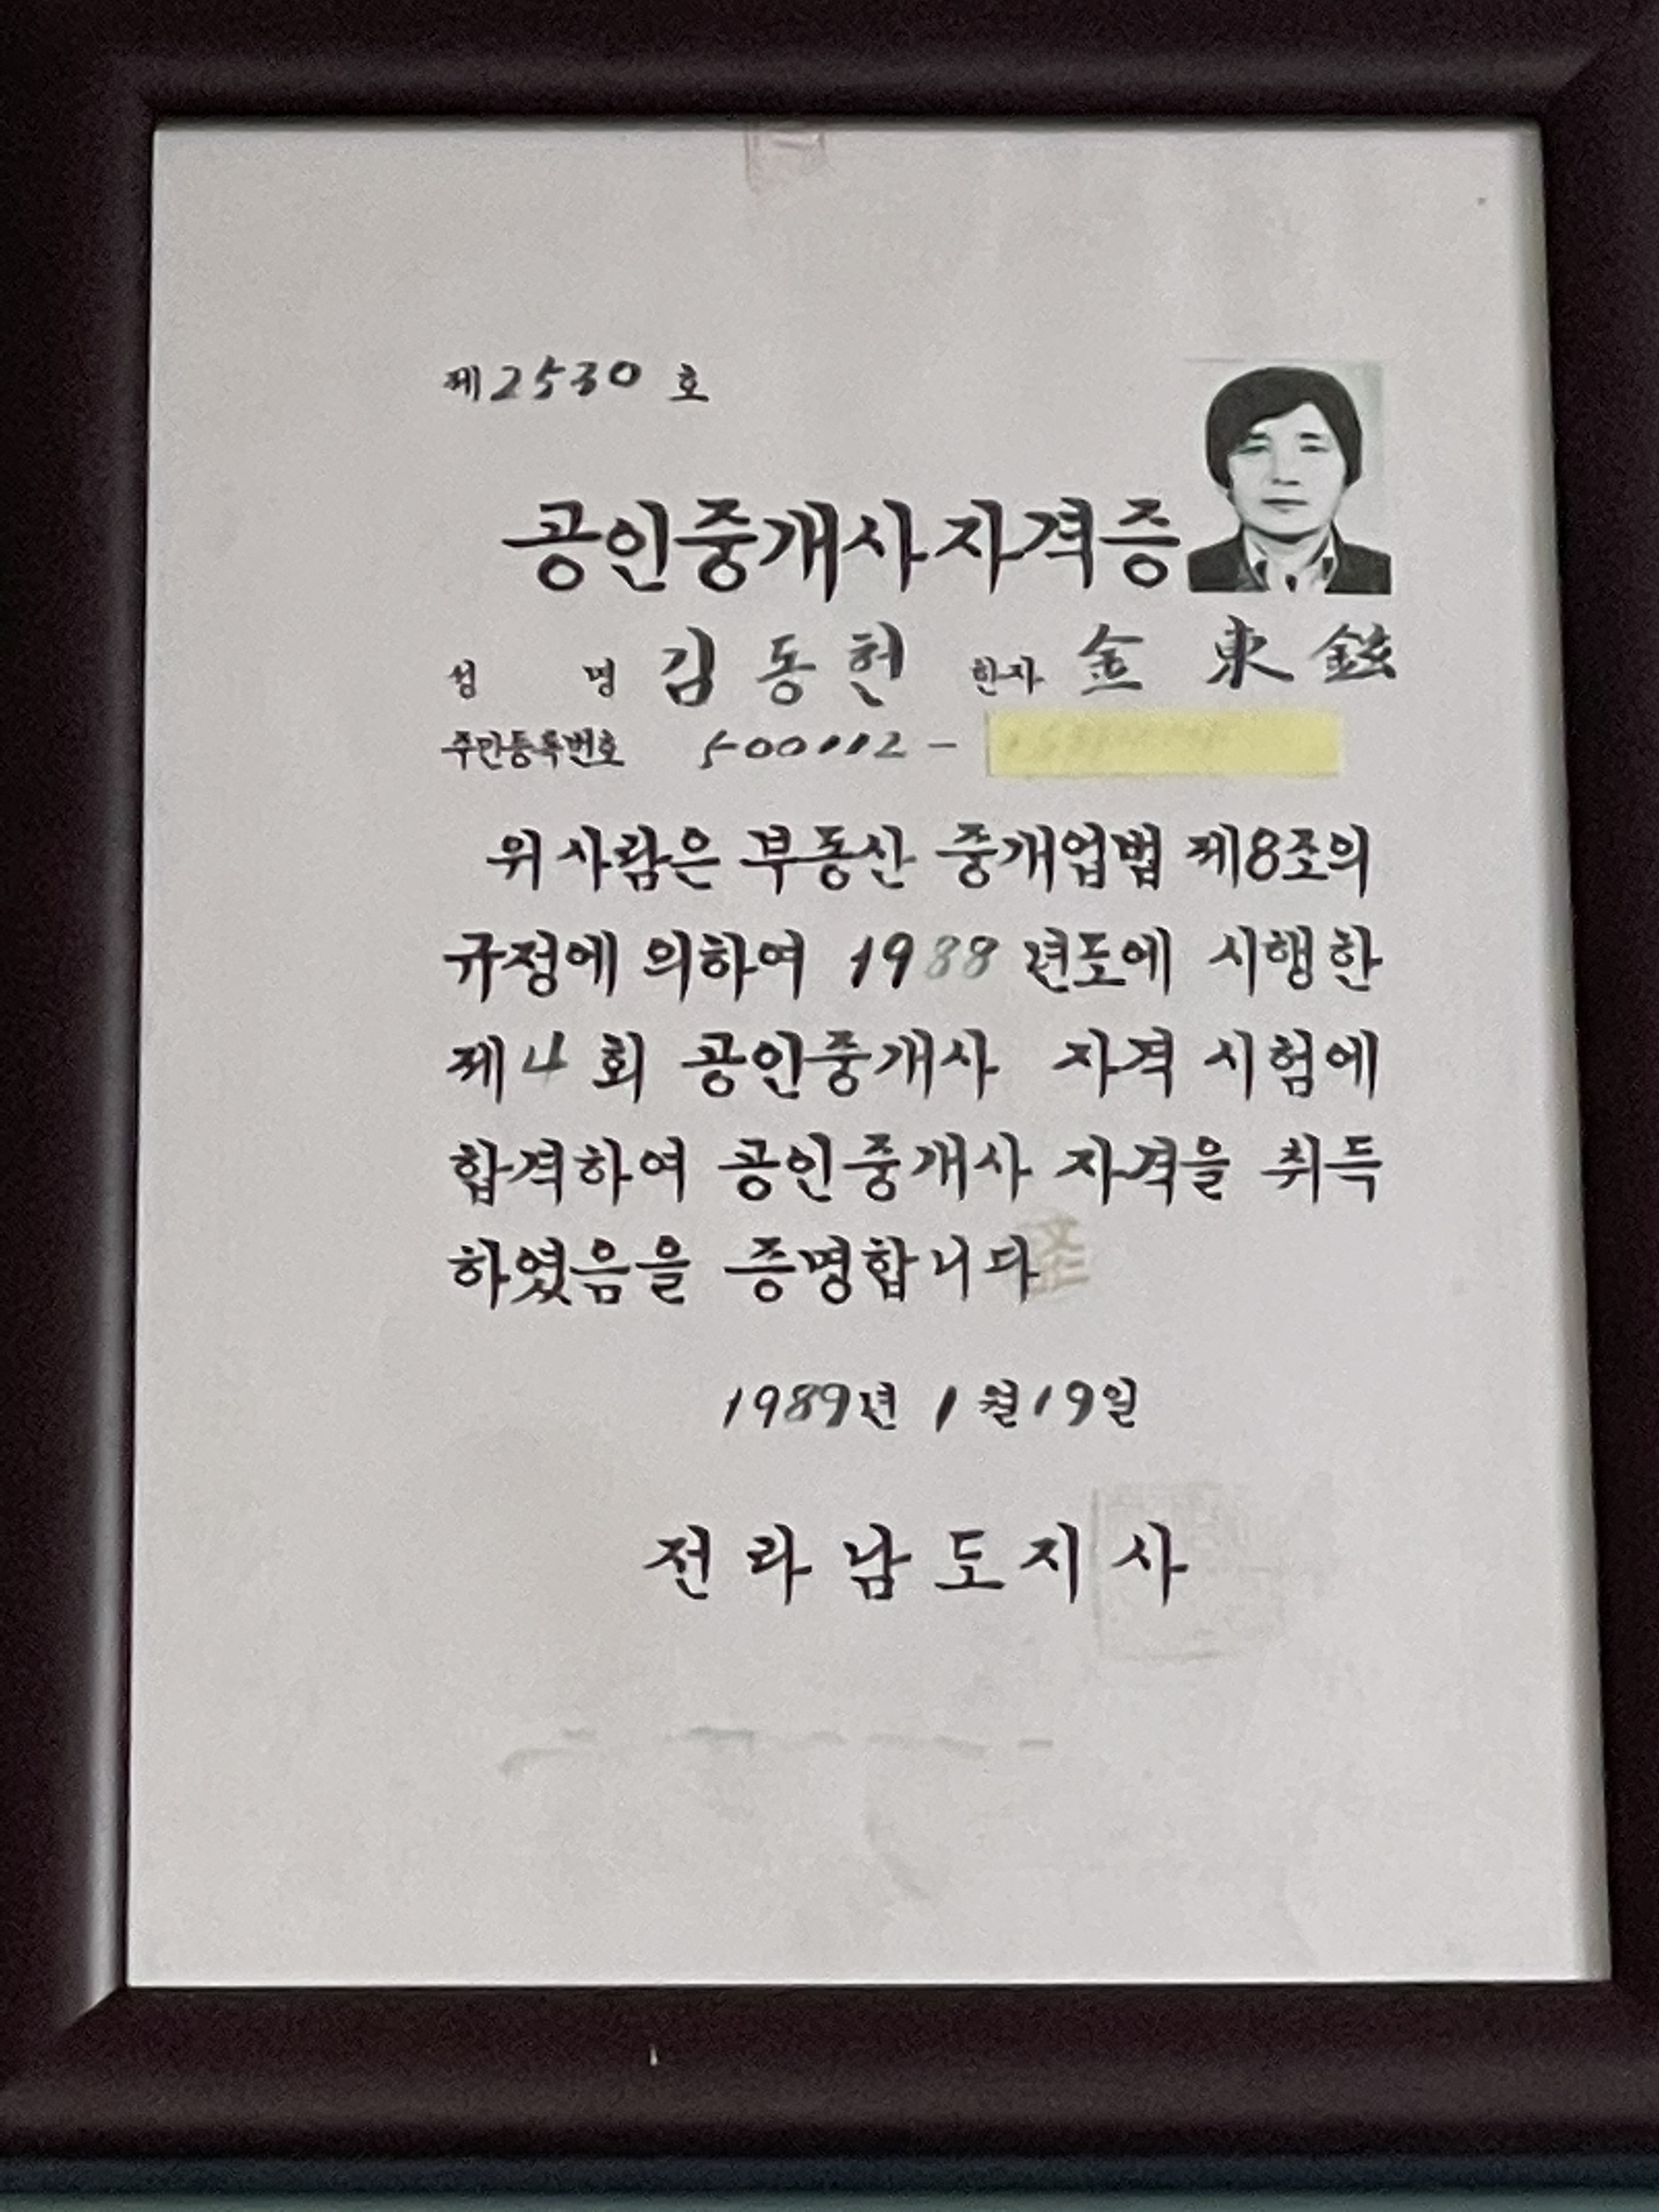 제2530 호
공인중개사자격증
성 명 김 동 현 한자 金 東 鉉
주민등록번호 500112 -
위 사람은 부동산 중개업법 제8조의
규정에 의하여 1988 년도에 시행한
제4 회 공인중개사 자격 시험에
합격하여 공인중개사 자격을 취득
하였음을 증명합니다
1989년 1월19일
전라남도지사